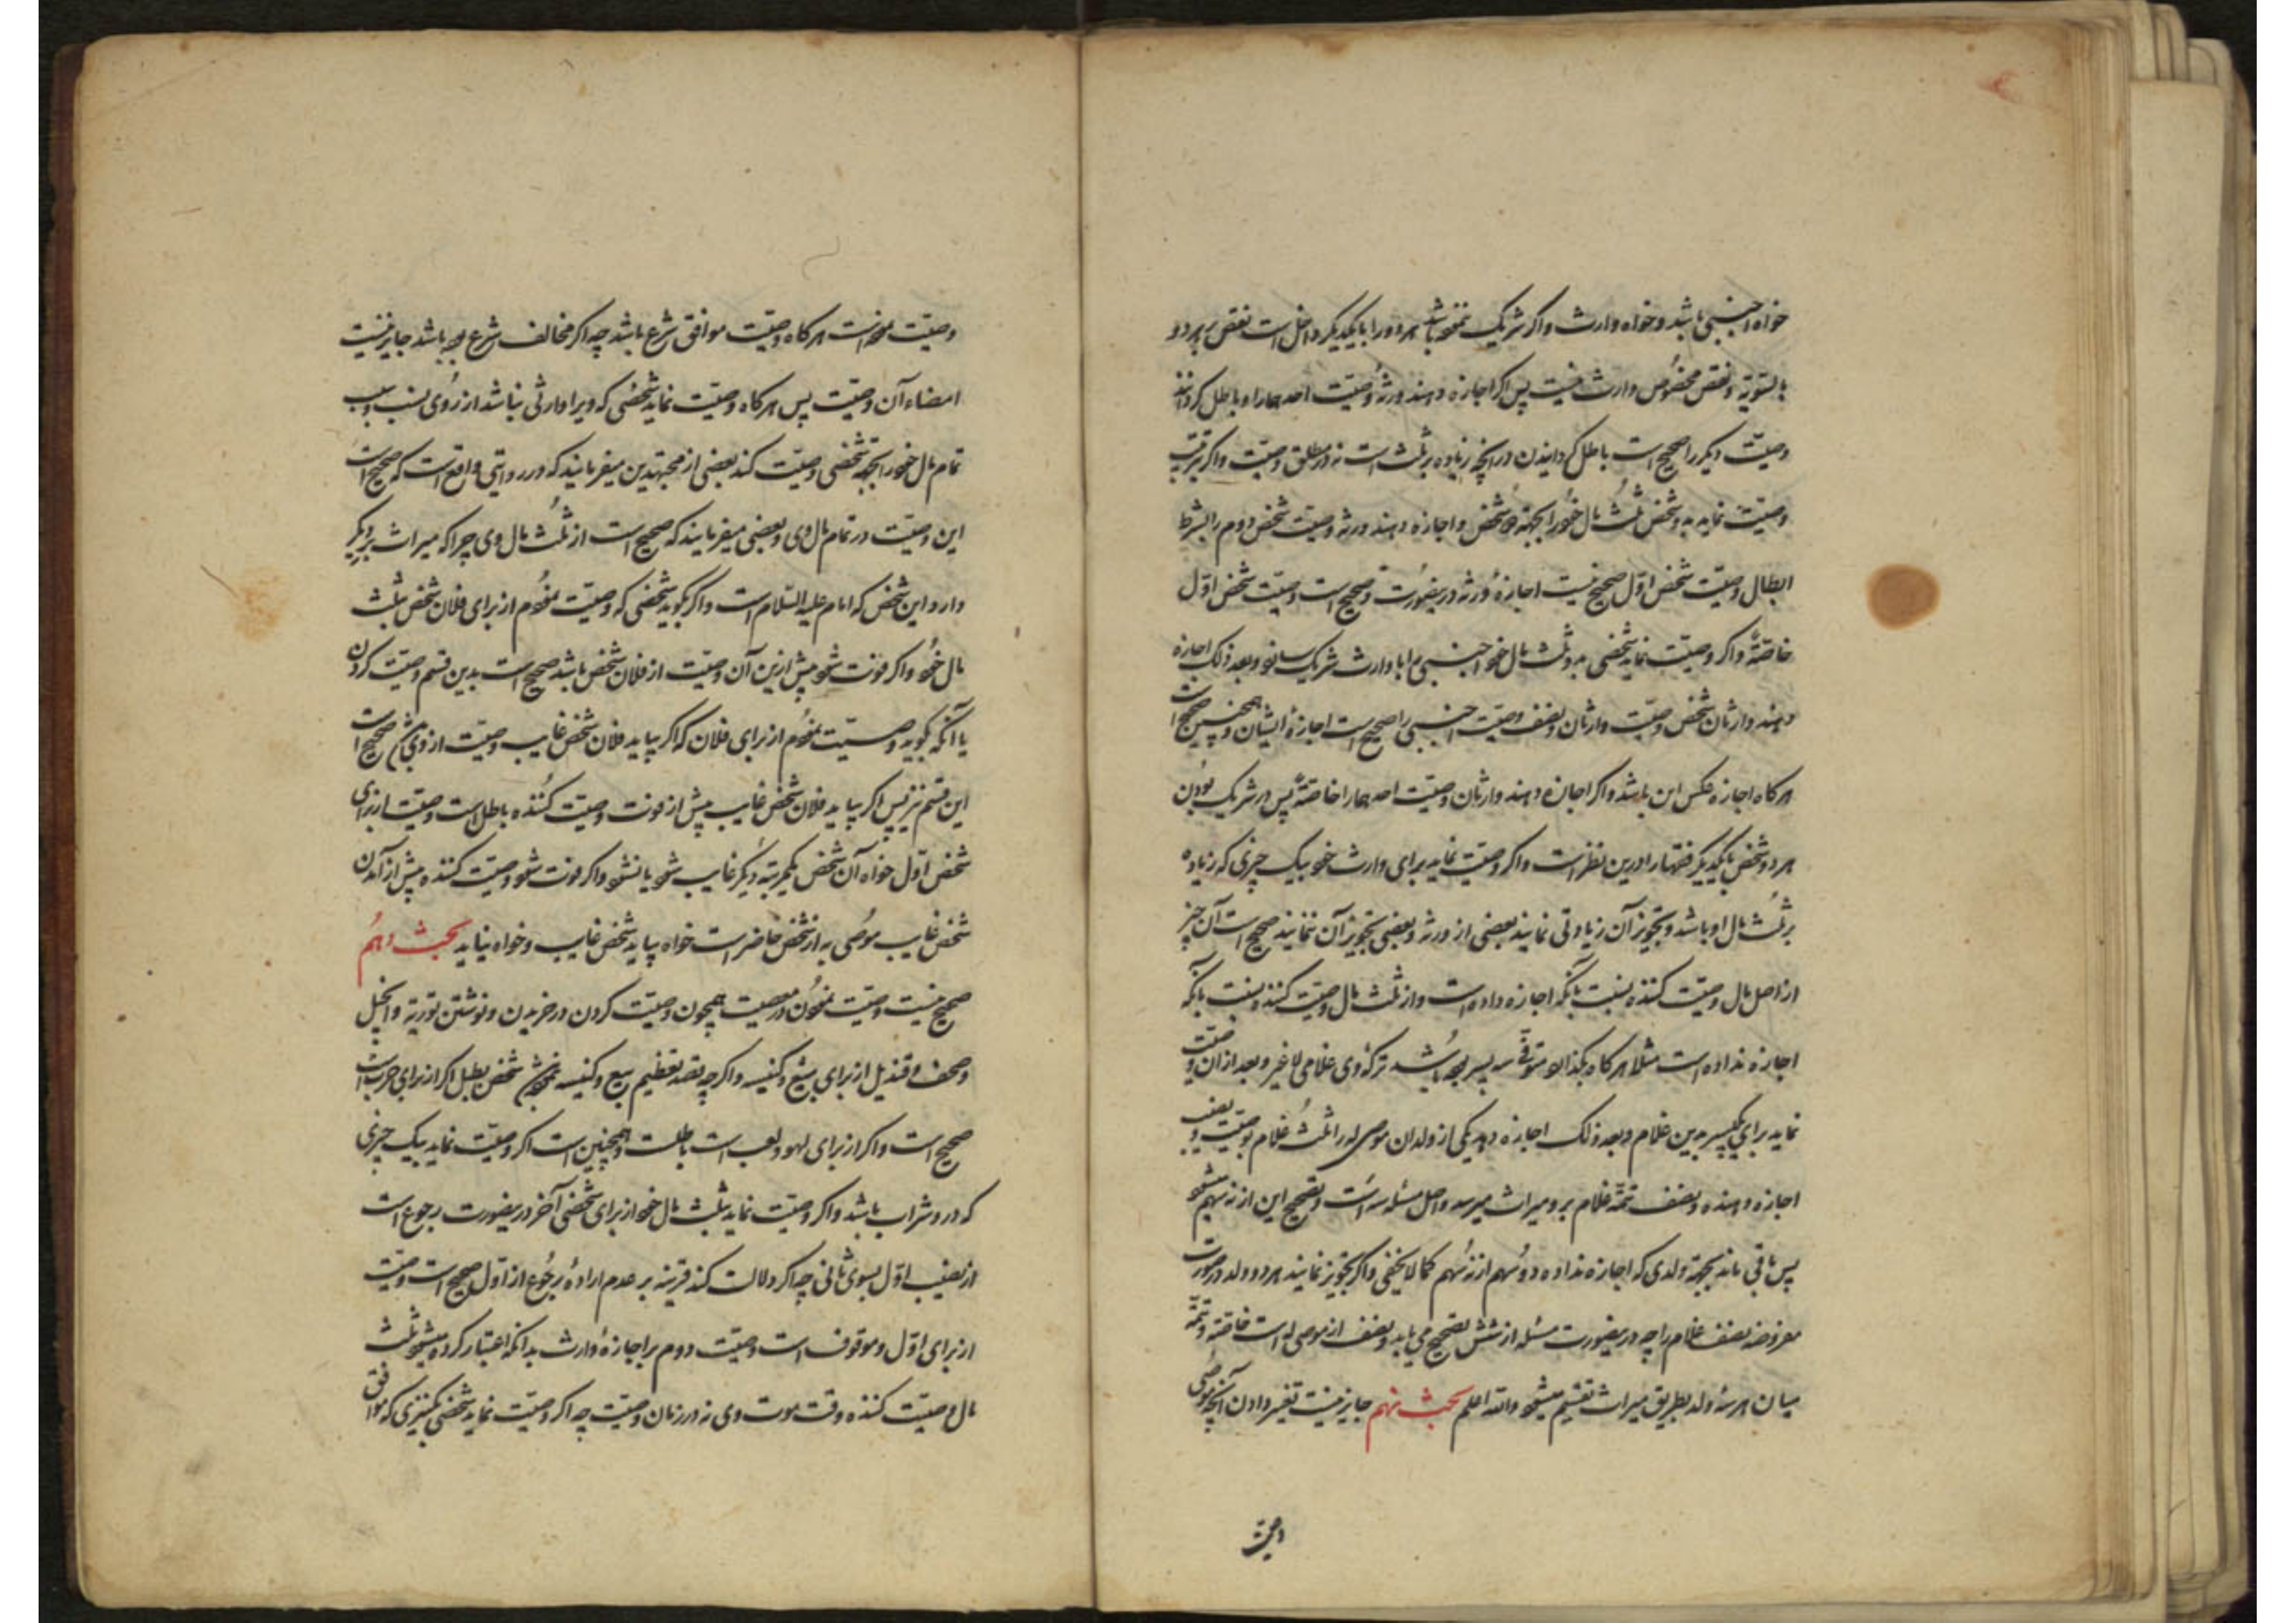 خواه اجنبی باشد و خواه وارث و اگر شریک نموده باشد هر دو را با یکدیگر داخل است نقص بر هر دو
بالتسویه و نقص مخصوص وارث نیست پس اگر اجازه دهند ورثه وصیت احدهما را و باطل کردانند
وصیت دیگر را صحیح است باطل کردانیدن در آنچه زیاده بر ثلث است نه در مطلق وصیت و اگر بترتیب
وصیت نماید به دو شخص ثلث مال خود را بجهة دو شخص و اجازه دهند ورثه وصیت شخص دوم را بشرط
ابطال وصیت شخص اول صحیح نیست اجازه ورثه درینصورت و صحیح است وصیت شخص اول
خاصّةً و اگر وصیت نماید شخصی به دو ثلث مال خود اجنبی را با وارث شریک سازد و بعد ذلک اجازه
دهند وارثان شخص وصیت وارثان و نصف وصیت اجنبی را صحیح است اجازه ایشان و همچنین صحیح است
هرکاه اجازه عکس این باشد و اگر اجازه دهند وارثان وصیت احدهما را خاصّةً پس در شریک بودن
هر دو شخص با یکدیگر فقها را درین نظر است و اگر وصیت نماید برای وارث خود بیک چیزی که زیاده
بر ثلث مال او باشد و تجویز آن زیادتی نمایند بعضی از ورثه و بعضی تجویز آن ننمایند صحیح است آن چیز
از اصل مال وصیت کننده نسبت بآنکه اجازه داده است و از ثلث مال وصیت کننده نسبت بآنکه
اجازه نداده است مثلا هرکاه بکذارد متوفی سه پسر بوده باشد ترکه وی غلامی لا غیر و بعد از آن وصیت
نماید برای یکپسر بدین غلام و بعد ذلک اجازه دهد یکی از ولدان موصی له را ثلث غلام بوصیت و نصف
اجازه دهنده و نصف تتمه غلام برو میراث میرسد و اصل مسئله سه است و تصحیح این از نه سهم میشود
پس باقی ماند بجهة ولدی که اجازه نداده دو سهم از نه سهم کما لا یخفی و اگر تجویز نمایند هر دو ولد در صورت
مفروضه نصف غلام را چه درینصورت مسئله از شش تصحیح می یابد و نصف از موصی له است خاصّةً و تتمه
میان هر سه ولد بطریق میراث تقسیم میشود و الله اعلم بحث نهم جایز نیست تغیر دادن آنچه موصی
وصیت
وصیت نموده است هرکاه وصیت موافق شرع باشد چه اگر مخالف شرع بوده باشد جایز نیست
امضاء آن وصیت پس هرکاه وصیت نماید شخصی که ویرا وارثی نباشد از روی نسب و سبب
تمام مال خود را بجهة شخصی وصیت کند بعضی از مجتهدین میفرمایند که در روایتی واقع است که صحیح است
این وصیت در تمام مال وی و بعضی میفرمایند که صحیح است از ثلث مال وی چرا که میراث بر دیگر
دارد این شخص که امام علیه السلام است و اگر بگوید شخصی که وصیت نمودم از برای فلان شخص بثلث
مال خود و اگر فوت شود پیش ازین آن وصیت از فلان شخص باشد صحیح است بدین قسم وصیت کردن
یا آنکه بگوید وصیت نمودم از برای فلان که اگر بیاید فلان شخص غایب وصیت از وی صحیح است
این قسم نیز پس اگر بیاید فلان شخص غایب پیش از فوت وصیت کننده باطل است وصیت از برای
شخص اول خواه آن شخص یکمرتبه دیگر غایب شود یا نشود و اگر فوت شود وصیت کننده پیش از آمدن
شخص غایب موصی به از شخص حاضر است خواه بیاید شخص غایب و خواه نیاید بحث دهم
صحیح نیست وصیت نمودن در معصیت همچون وصیت کردن در خریدن و نوشتن توریة و انجیل
و صحف و قندیل از برای بیع و کنیسه و اگر چه بقصد تعظیم بیع و کنیسه شخص بطبل اگر از برای حرب است
صحیح است و اگر از برای لهو و لعب است باطلست و همچنین است اگر وصیت نماید بیک چیزی
که در و شراب باشد و اگر وصیت نماید بثلث مال خود از برای شخصی آخر درینصورت رجوع است
از نصیب اول بسوی ثانی چه اگر دلالت کند قرینه بر عدم اراده رجوع از اول صحیح است وصیت
از برای اول و موقوف است وصیت دوم بر اجازه وارث بدانکه اعتبار کرده میشود ثلث
مال وصیت کننده وقت موت وی نه در زمان وصیت چه اگر وصیت نماید شخصی بکنیزی که موافق